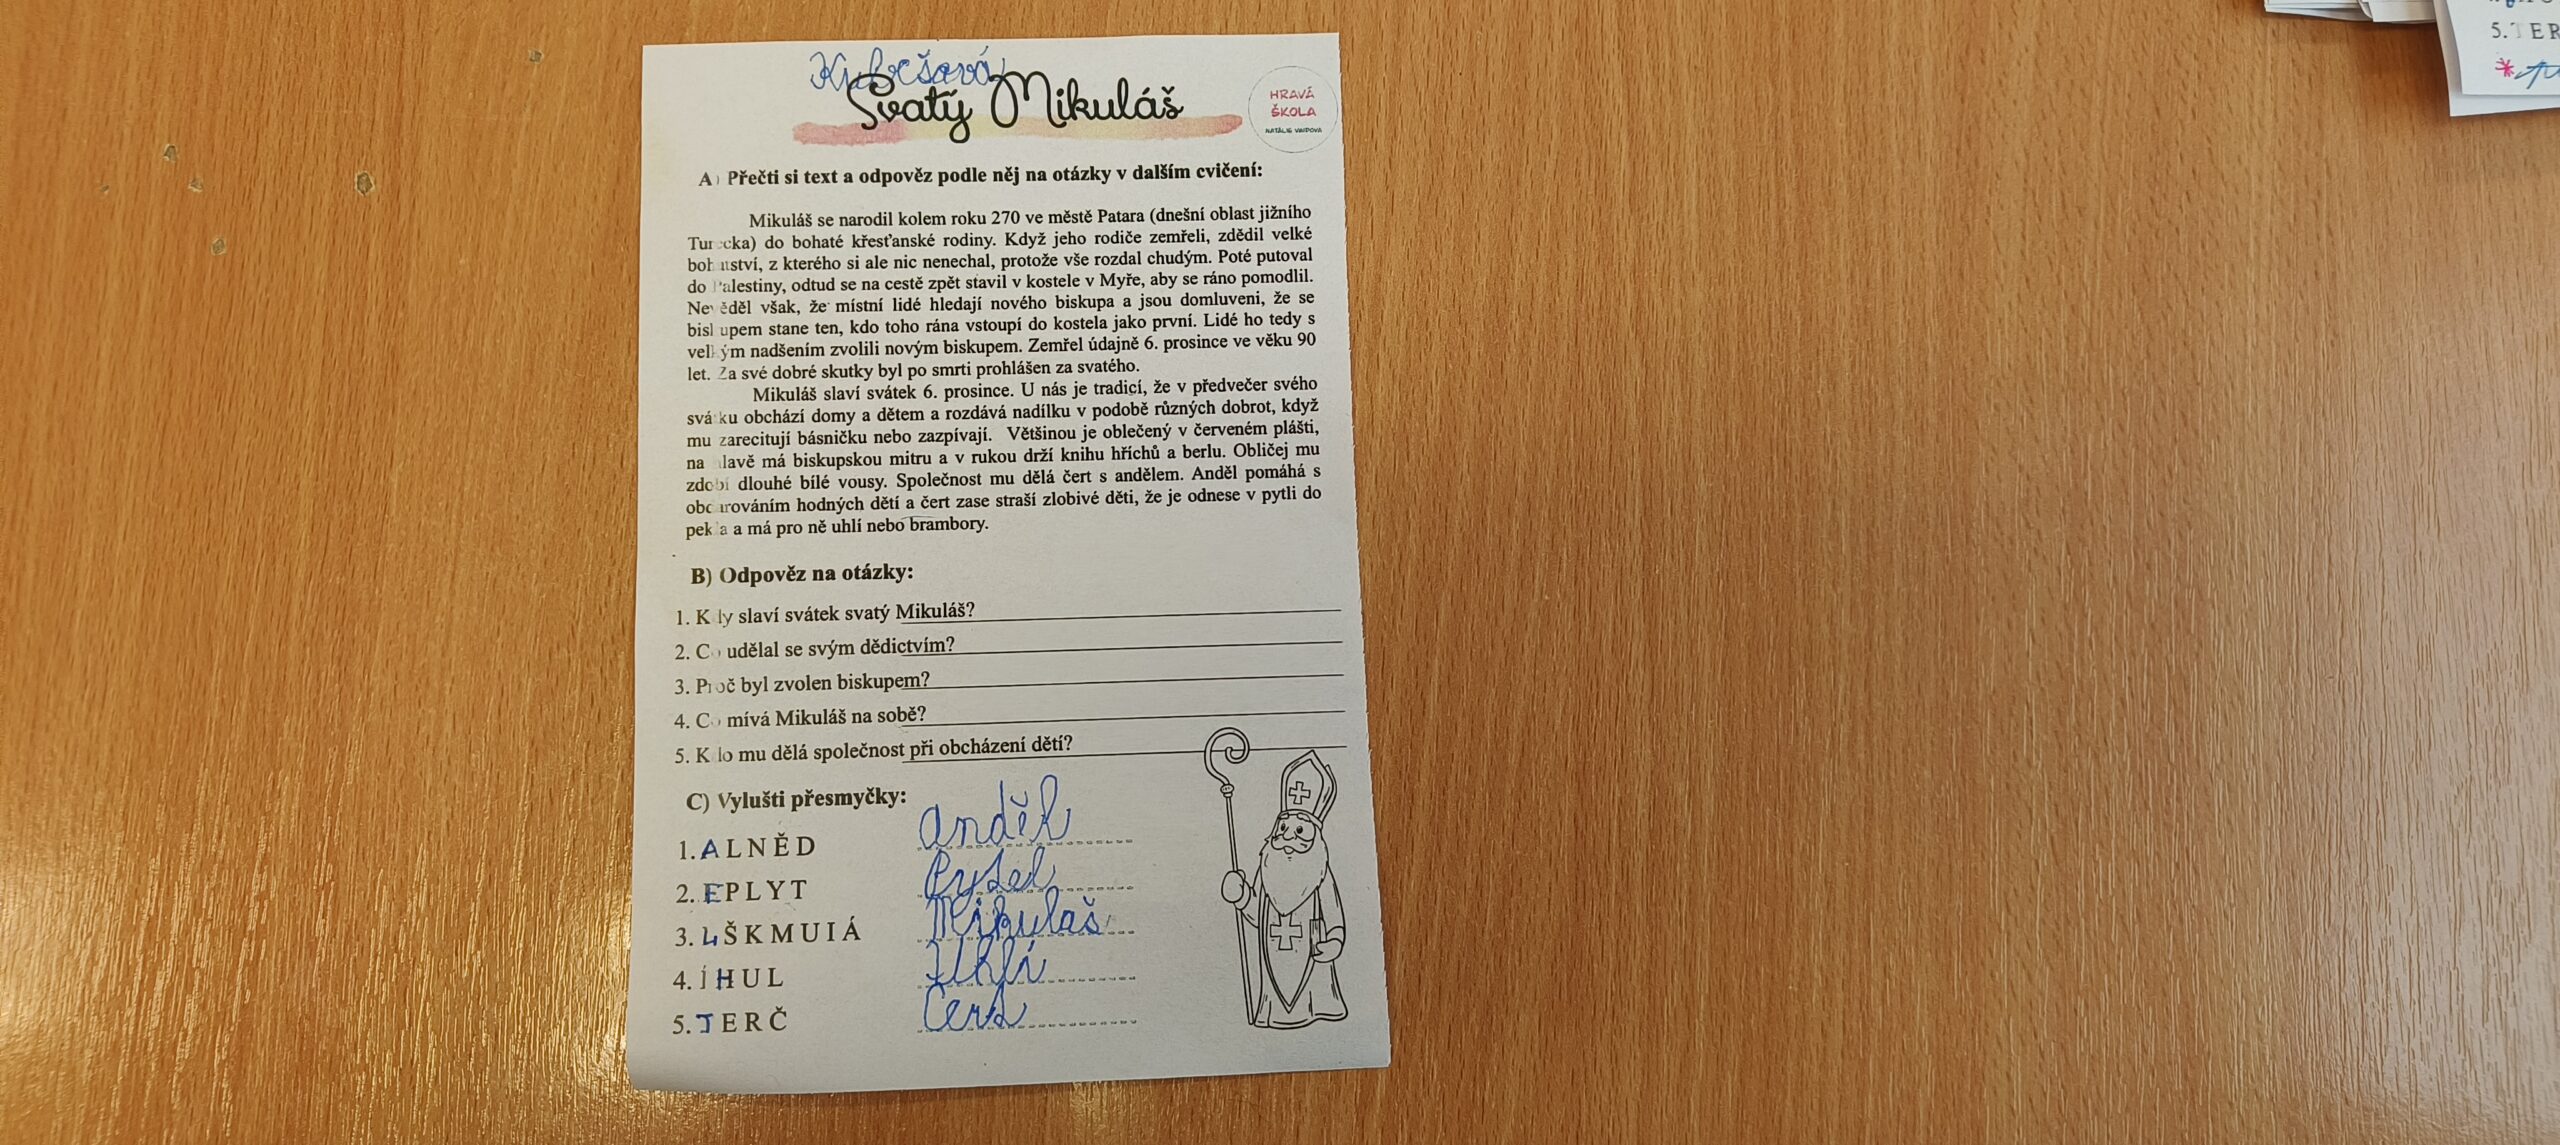 Kubešová
Svatý Mikuláš
HRAVÁ
ŠKOLA
A) Přečti si text a odpověz podle něj na otázky v dalším cvičení:
Mikuláš se narodil kolem roku 270 ve městě Patara (dnešní oblast jižního
Turecka) do bohaté křesťanské rodiny. Když jeho rodiče zemřeli, zdědil velké
bohatství, z kterého si ale nic nenechal, protože vše rozdal chudým. Poté putoval
do Palestiny, odtud se na cestě zpět stavil v kostele v Myře, aby se ráno pomodlil.
Nevěděl však, že místní lidé hledají nového biskupa a jsou domluveni, že se
biskupem stane ten, kdo toho rána vstoupí do kostela jako první. Lidé ho tedy s
velkým nadšením zvolili novým biskupem. Zemřel údajně 6. prosince ve věku 90
let. Za své dobré skutky byl po smrti prohlášen za svatého.
Mikuláš slaví svátek 6. prosince. U nás je tradicí, že v předvečer svého
svátku obchází domy a dětem a rozdává nadílku v podobě různých dobrot, když
mu zarecitují básničku nebo zazpívají. Většinou je oblečený v červeném plášti,
na hlavě má biskupskou mitru a v rukou drží knihu hříchů a berlu. Obličej mu
zdobí dlouhé bílé vousy. Společnost mu dělá čert s andělem. Anděl pomáhá s
obdarováním hodných dětí a čert zase straší zlobivé děti, že je odnese v pytli do
pekla a má pro ně uhlí nebo brambory.
B) Odpověz na otázky:
1. Kdy slaví svátek svatý Mikuláš?
2. Co udělal se svým dědictvím?
3. Proč byl zvolen biskupem?
4. Co mívá Mikuláš na sobě?
5. Kdo mu dělá společnost při obcházení dětí?
C) Vylušti přesmyčky:
1. A L N Ě D Anděl
2. E P L Y T Pytel
3. L Š K M U I Á Mikulaš
4. Í H U L Uhlí
5. T E R Č Čert
5. T E R